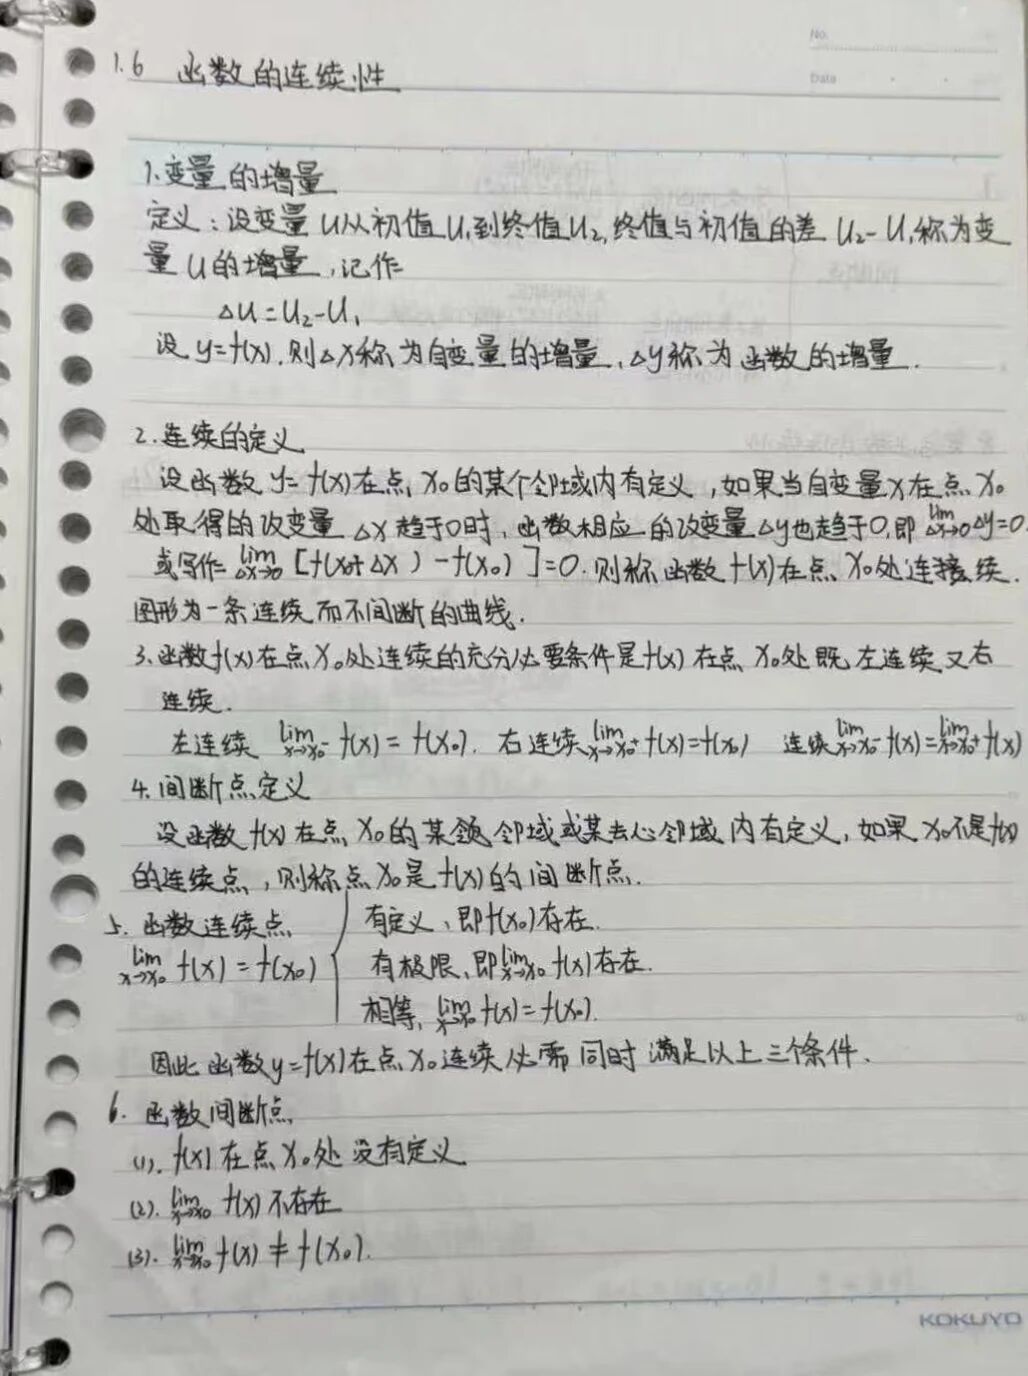 No.
Date
1.6 函数的连续性
1.变量的增量
定义：设变量 U从初值 U₁到终值U₂,终值与初值的差 U₂-U₁称为变
量 U的增量,记作
△U=U₂-U₁
设 y=f(x).则△x称为自变量的增量、△y称为函数的增量.
2.连续的定义
设函数 y=f(x)在点 x₀的某个邻域内有定义,如果当自变量x在点x₀
处取得的改变量 △x趋于0时,函数相应的改变量△y也趋于0,即 lim△x→0 △y=0.
或写作 lim△x→0 [f(x₀+△x)-f(x₀)]=0.则称函数f(x)在点x₀处连续.
图形为一条连续而不间断的曲线.
3.函数f(x)在点x₀处连续的充分必要条件是f(x)在点x₀处既左连续又右
连续.
左连续 limx→x₀⁻ f(x)=f(x₀). 右连续limx→x₀⁺ f(x)=f(x₀) 连续limx→x₀⁻ f(x)=limx→x₀⁺ f(x)
4.间断点定义
设函数f(x)在点x₀的某邻域或某去心邻域内有定义,如果x₀不是f(x)
的连续点,则称点x₀是f(x)的间断点.
5.函数连续点 有定义、即f(x₀)存在.
limx→x₀ f(x)=f(x₀) { 有极限、即limx→x₀ f(x)存在.
相等, limx→x₀ f(x)=f(x₀).
因此函数y=f(x)在点x₀连续必需同时满足以上三个条件.
6.函数间断点
(1).f(x)在点x₀处没有定义
(2).limx→x₀ f(x)不存在
(3).limx→x₀ f(x)≠f(x₀).
KOKUYO